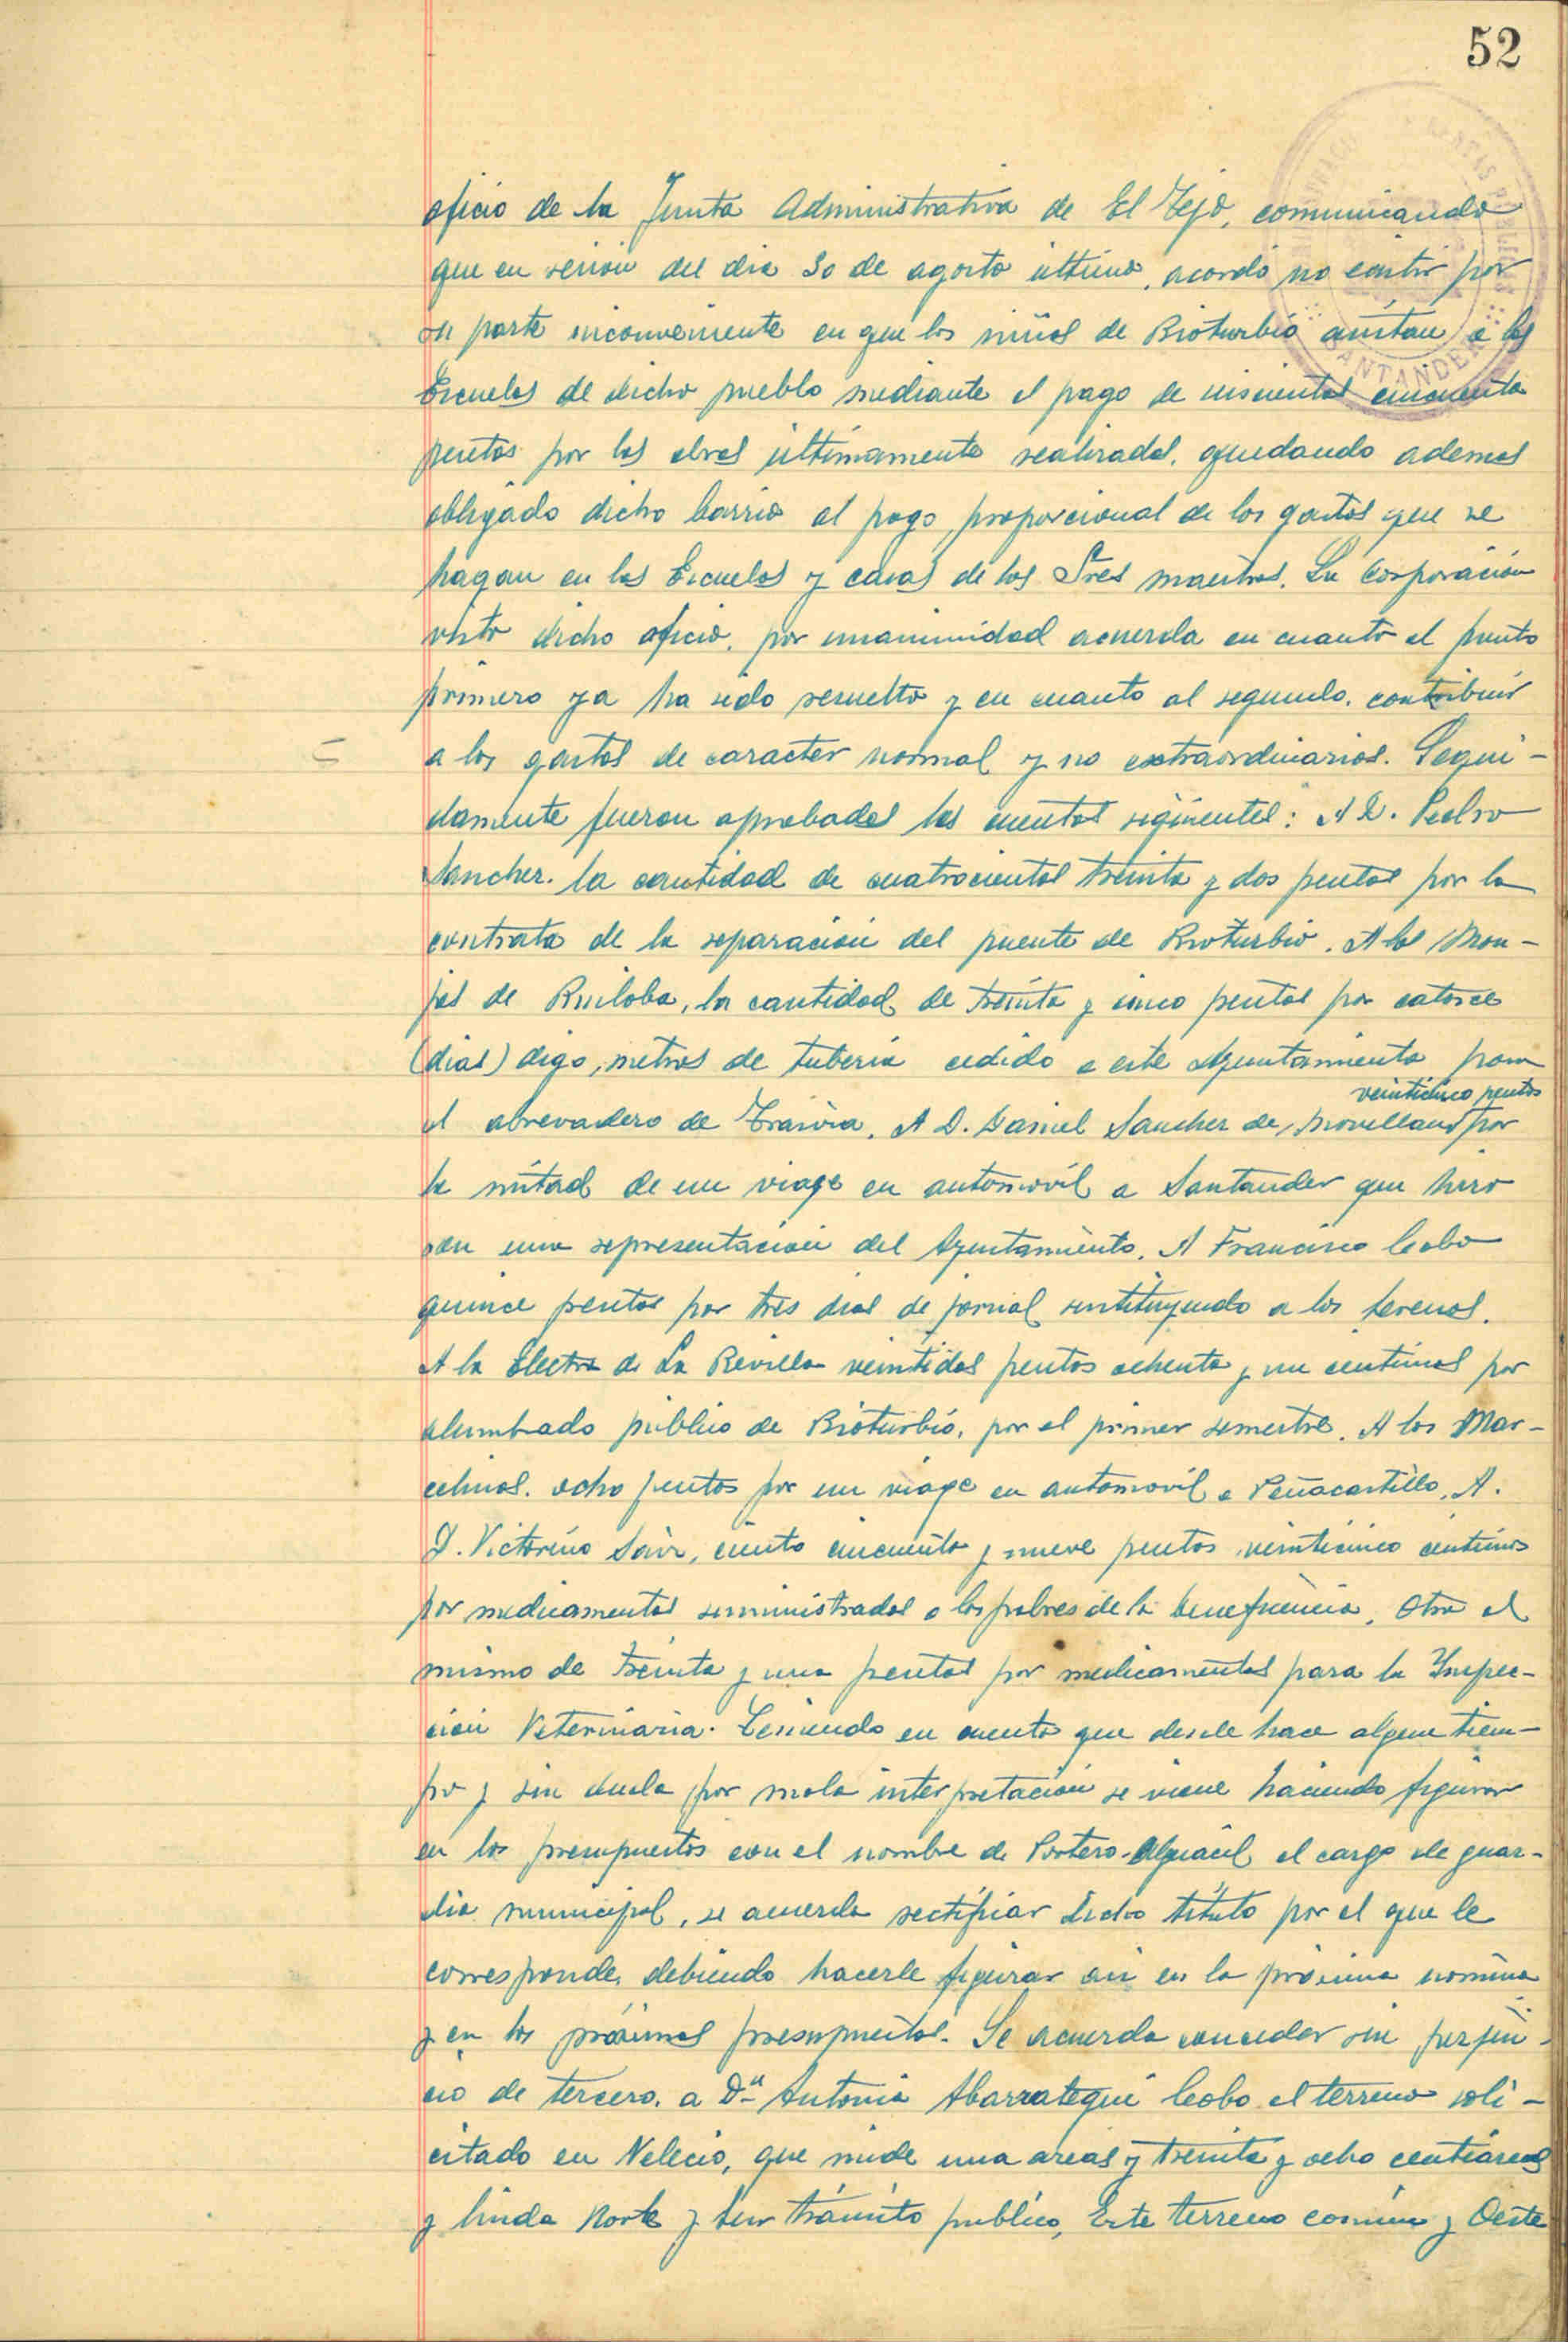 52
oficio de la Junta Administrativa de El Tejo, comunicando
que en sesion del dia 30 de agosto ultimo, acordó no existir por
su parte inconveniente en que los niños de Rioturbio asistan a las
Escuelas de dicho pueblo mediante el pago de seiscientas cincuenta
pesetas por las obras últimamente realizadas, quedando ademas
obligado dicho barrio al pago proporcional de los gastos que se
hagan en las Escuelas y casas de los Sres maestros. La Corporación
visto dicho oficio, por unanimidad acuerda en cuanto al punto
primero ya ha sido resuelto y en cuanto al segundo, contribuir
a los gastos de caracter normal y no extraordinarios. Segui-
damente fueron aprobadas las cuentas siguientes: A D. Pedro
Sanchez. la cantidad de cuatrocientas treinta y dos pesetas por la
contrata de la reparación del puente de Rioturbio. A las Mon-
jas de Ruiloba, la cantidad de treinta y cinco pesetas por catorce
(dias) digo, metros de tuberia cedido a este Ayuntamiento para
veinticinco pesetas
el abrevadero de Trasvia. A D. Daniel Sanchez de Movellan por
la mitad de un viage en automovil a Santander que hizo
con una representación del Ayuntamiento. A Francisco Cobo
quince pesetas por tres dias de jornal sustituyendo a los serenos.
A la Electra de La Revilla veintidos pesetas ochenta y un centimos por
alumbrado publico de Rioturbio, por el primer semestre. A los Mar-
celinos. ocho pesetas por un viage en automovil a Peñacastillo. A.
D. Victorino Sainz, ciento cincuenta y nueve pesetas veinticinco centimos
por medicamentos suministrados a los pobres de la beneficencia. Otra al
mismo de treinta y una pesetas por medicamentos para la Inspec-
cion Veterinaria. Teniendo en cuenta que desde hace algun tiem-
po y sin duda por mala interpretación se viene haciendo figurar
en los presupuestos con el nombre de Portero-Alguacil el cargo de guar-
dia municipal, se acuerda rectificar dicho titulo por el que le
corresponde, debiendo hacerle figurar asi en la próxima nomina
y en los próximos presupuestos. Se acuerda conceder sin perjui-
cio de tercero, a Dª Antonia Abarrategui Cobo el terreno soli-
citado en Velecio, que mide una areas y treinta y ocho centiáreas
y linda Norte y Sur tránsito publico, Este terreno común y Oeste
SANTANDER